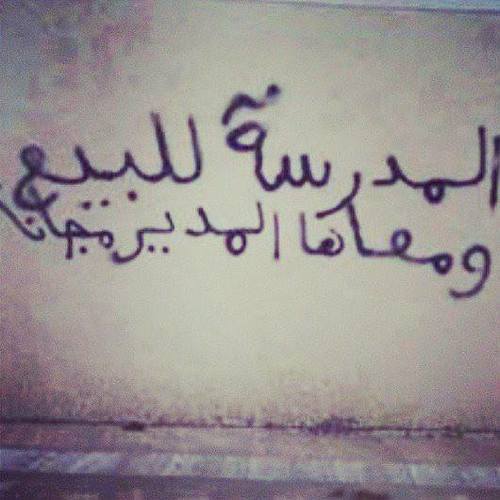 المدرسة للبيع
ومعاها المدير مجانا